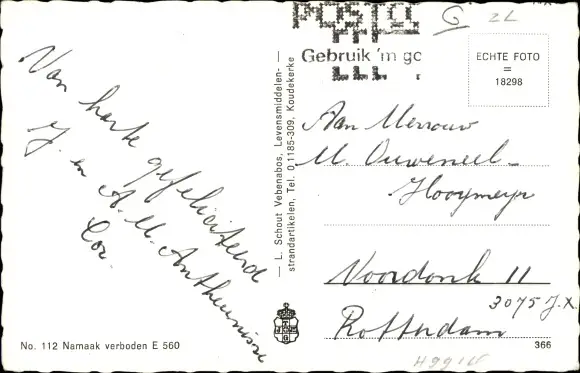 POSTC
G 2L
Gebruik 'm go
ECHTE FOTO
=
18298
Van harte gefeliciteerd
J. en A.M. Antheunisse
Cor.
— L. Schout Vebenabos, Levensmiddelen-
strandartikelen, Tel. 01185-309, Koudekerke
Aan Mevrouw
M. Ouweneel-
Hooymeyer
Voordonk 11
3075 J.X.
Rotterdam
No. 112 Namaak verboden E 560
366